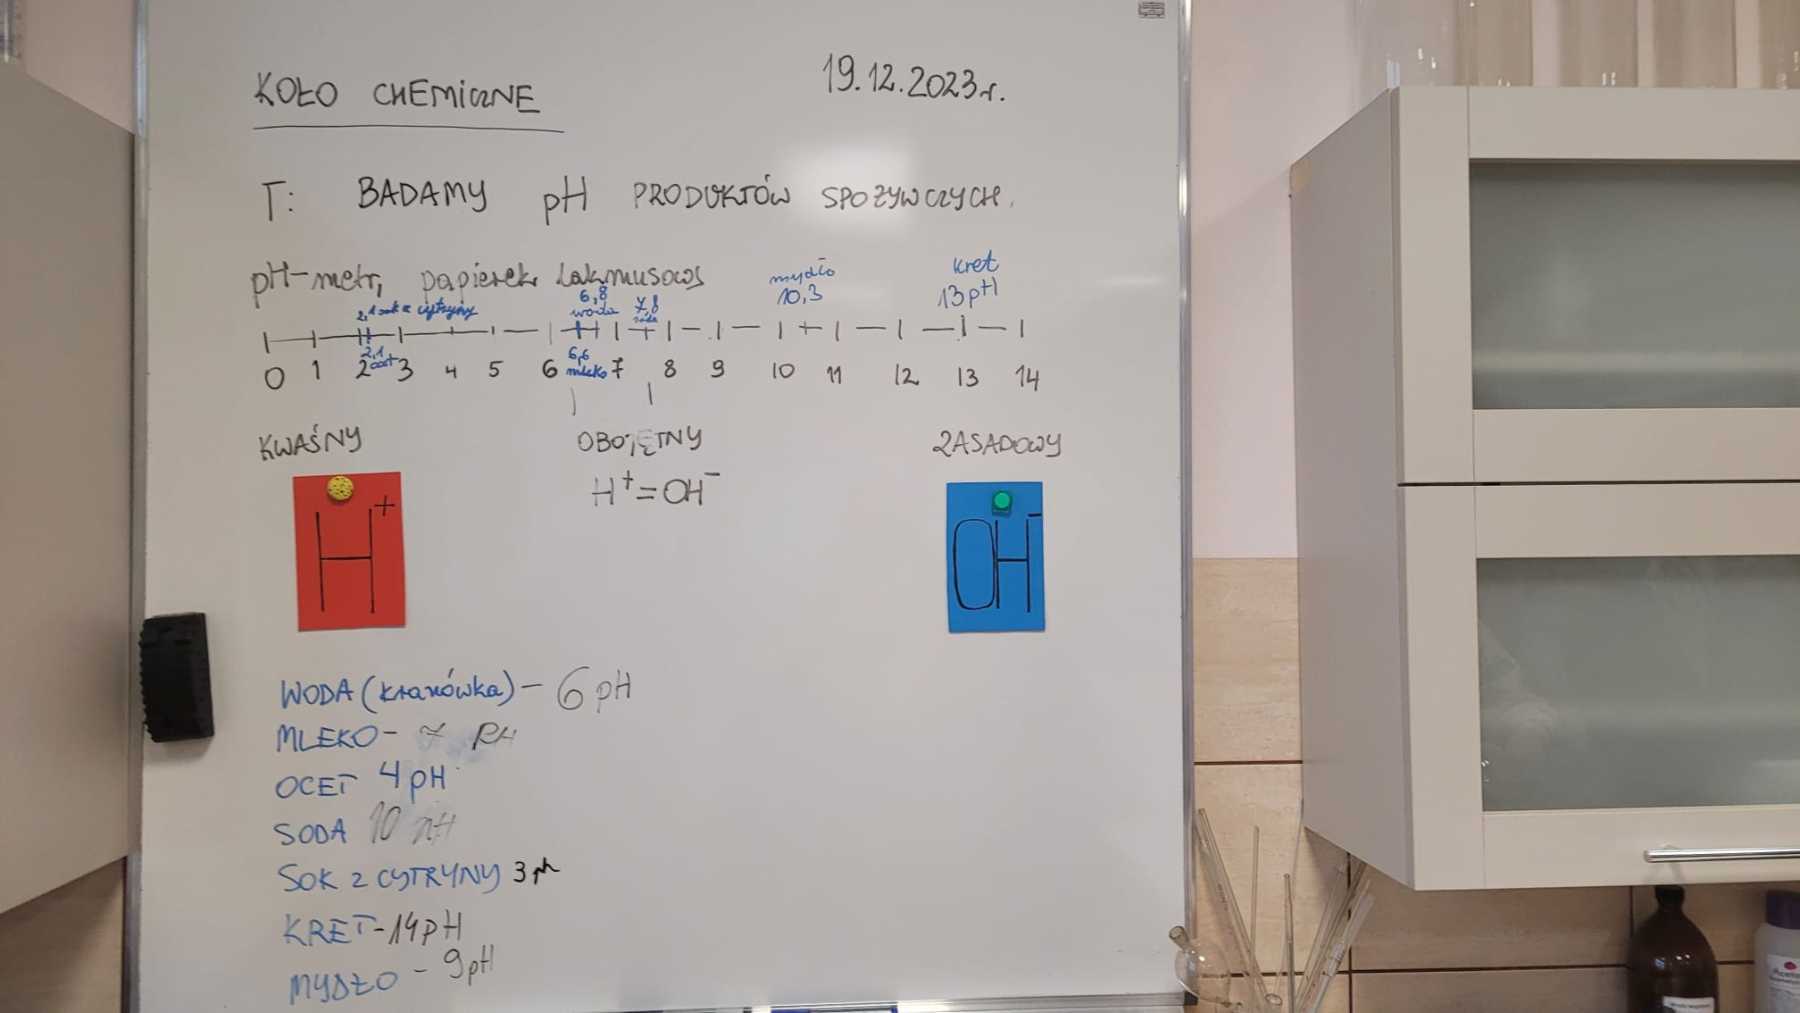 KOŁO CHEMICZNE
19.12.2023r.
T: BADAMY pH PRODUKTÓW SPOŻYWCZYCH.
pH-metr, papierek lakmusowy
mydło
10,3
kret
13pH
2,1 sok z cytryny
6,8
woda
7,8
soda
2,1
ocet
6,6
mleko
0 1 2 3 4 5 6 7 8 9 10 11 12 13 14
KWAŚNY
OBOJĘTNY
ZASADOWY
H+
H+ = OH-
OH-
WODA (kranówka) - 6 pH
MLEKO - 7 pH
OCET 4 pH
SODA 10 pH
SOK Z CYTRYNY 3 pH
KRET - 14 pH
MYDŁO - 9 pH